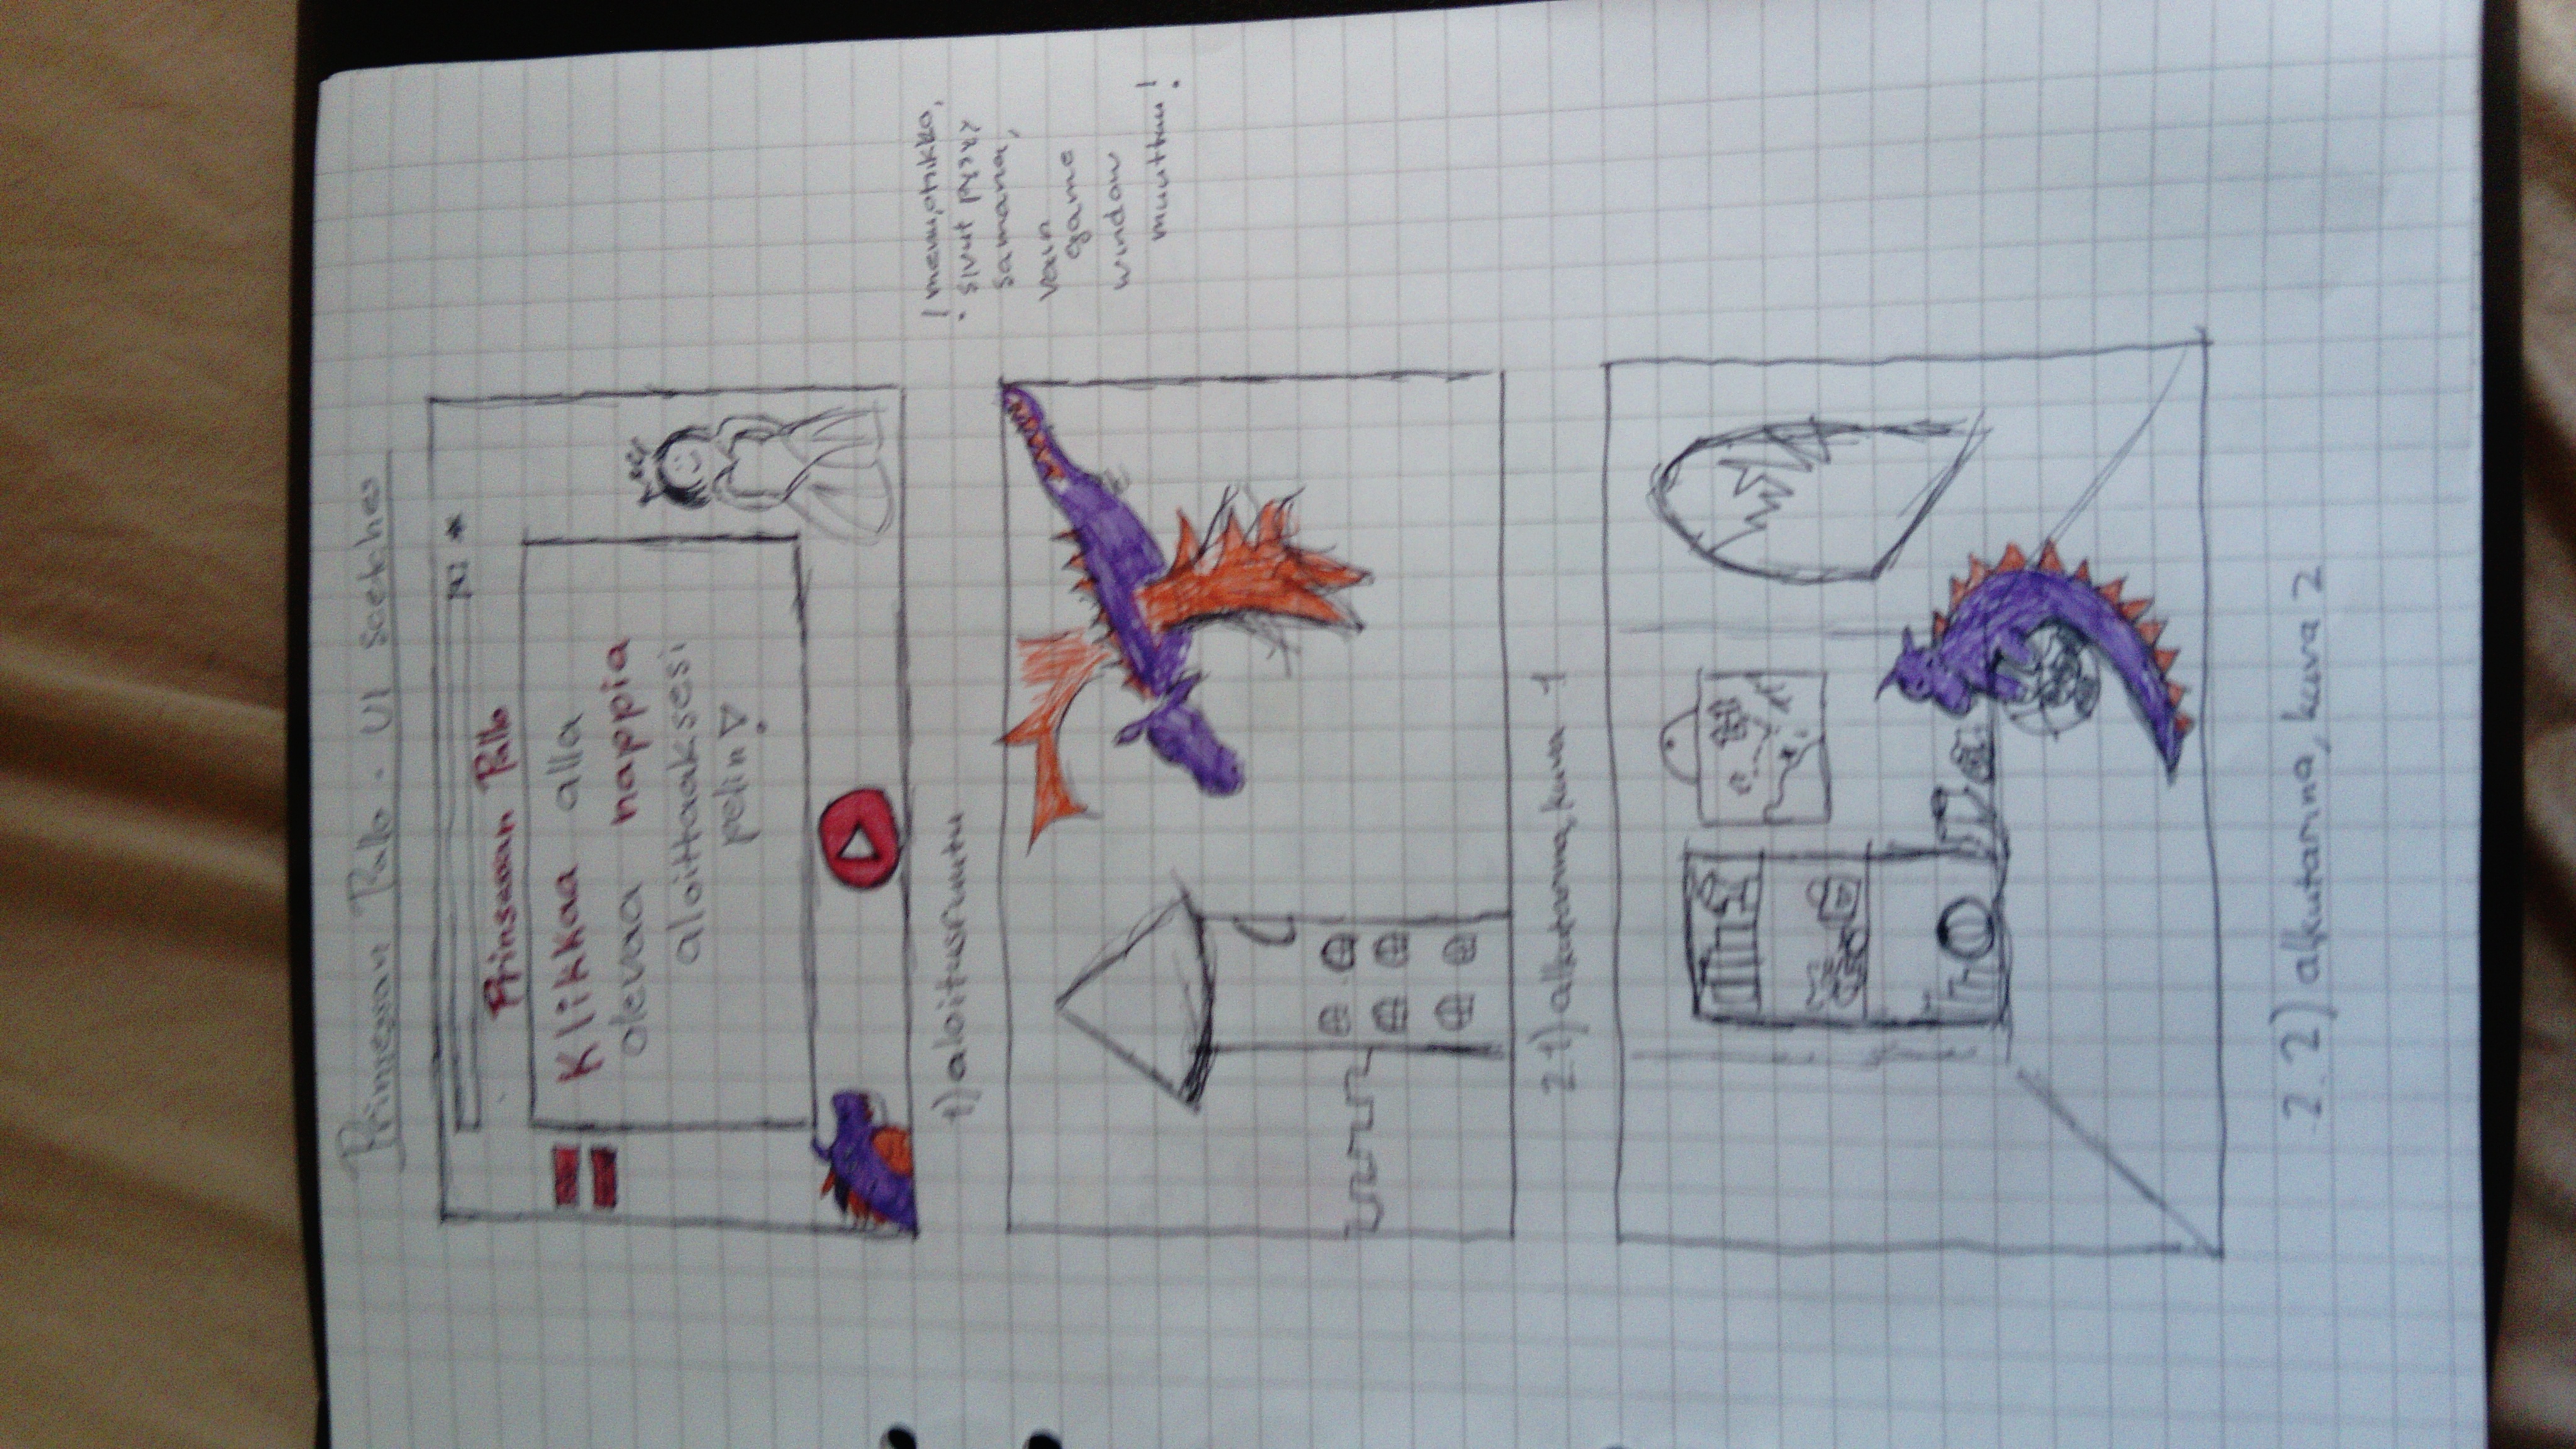 Prinsessan Pallo - UI scetches
Prinsessan Pallo
Klikkaa alla
olevaa nappia
aloittaaksesi
pelin!
1) aloitusruutu
! menu, otsikko,
sivut pysyy
samana,
vain
game
window
muuttuu!
2.1) alkutarina, kuva 1
2.2) alkutarina, kuva 2